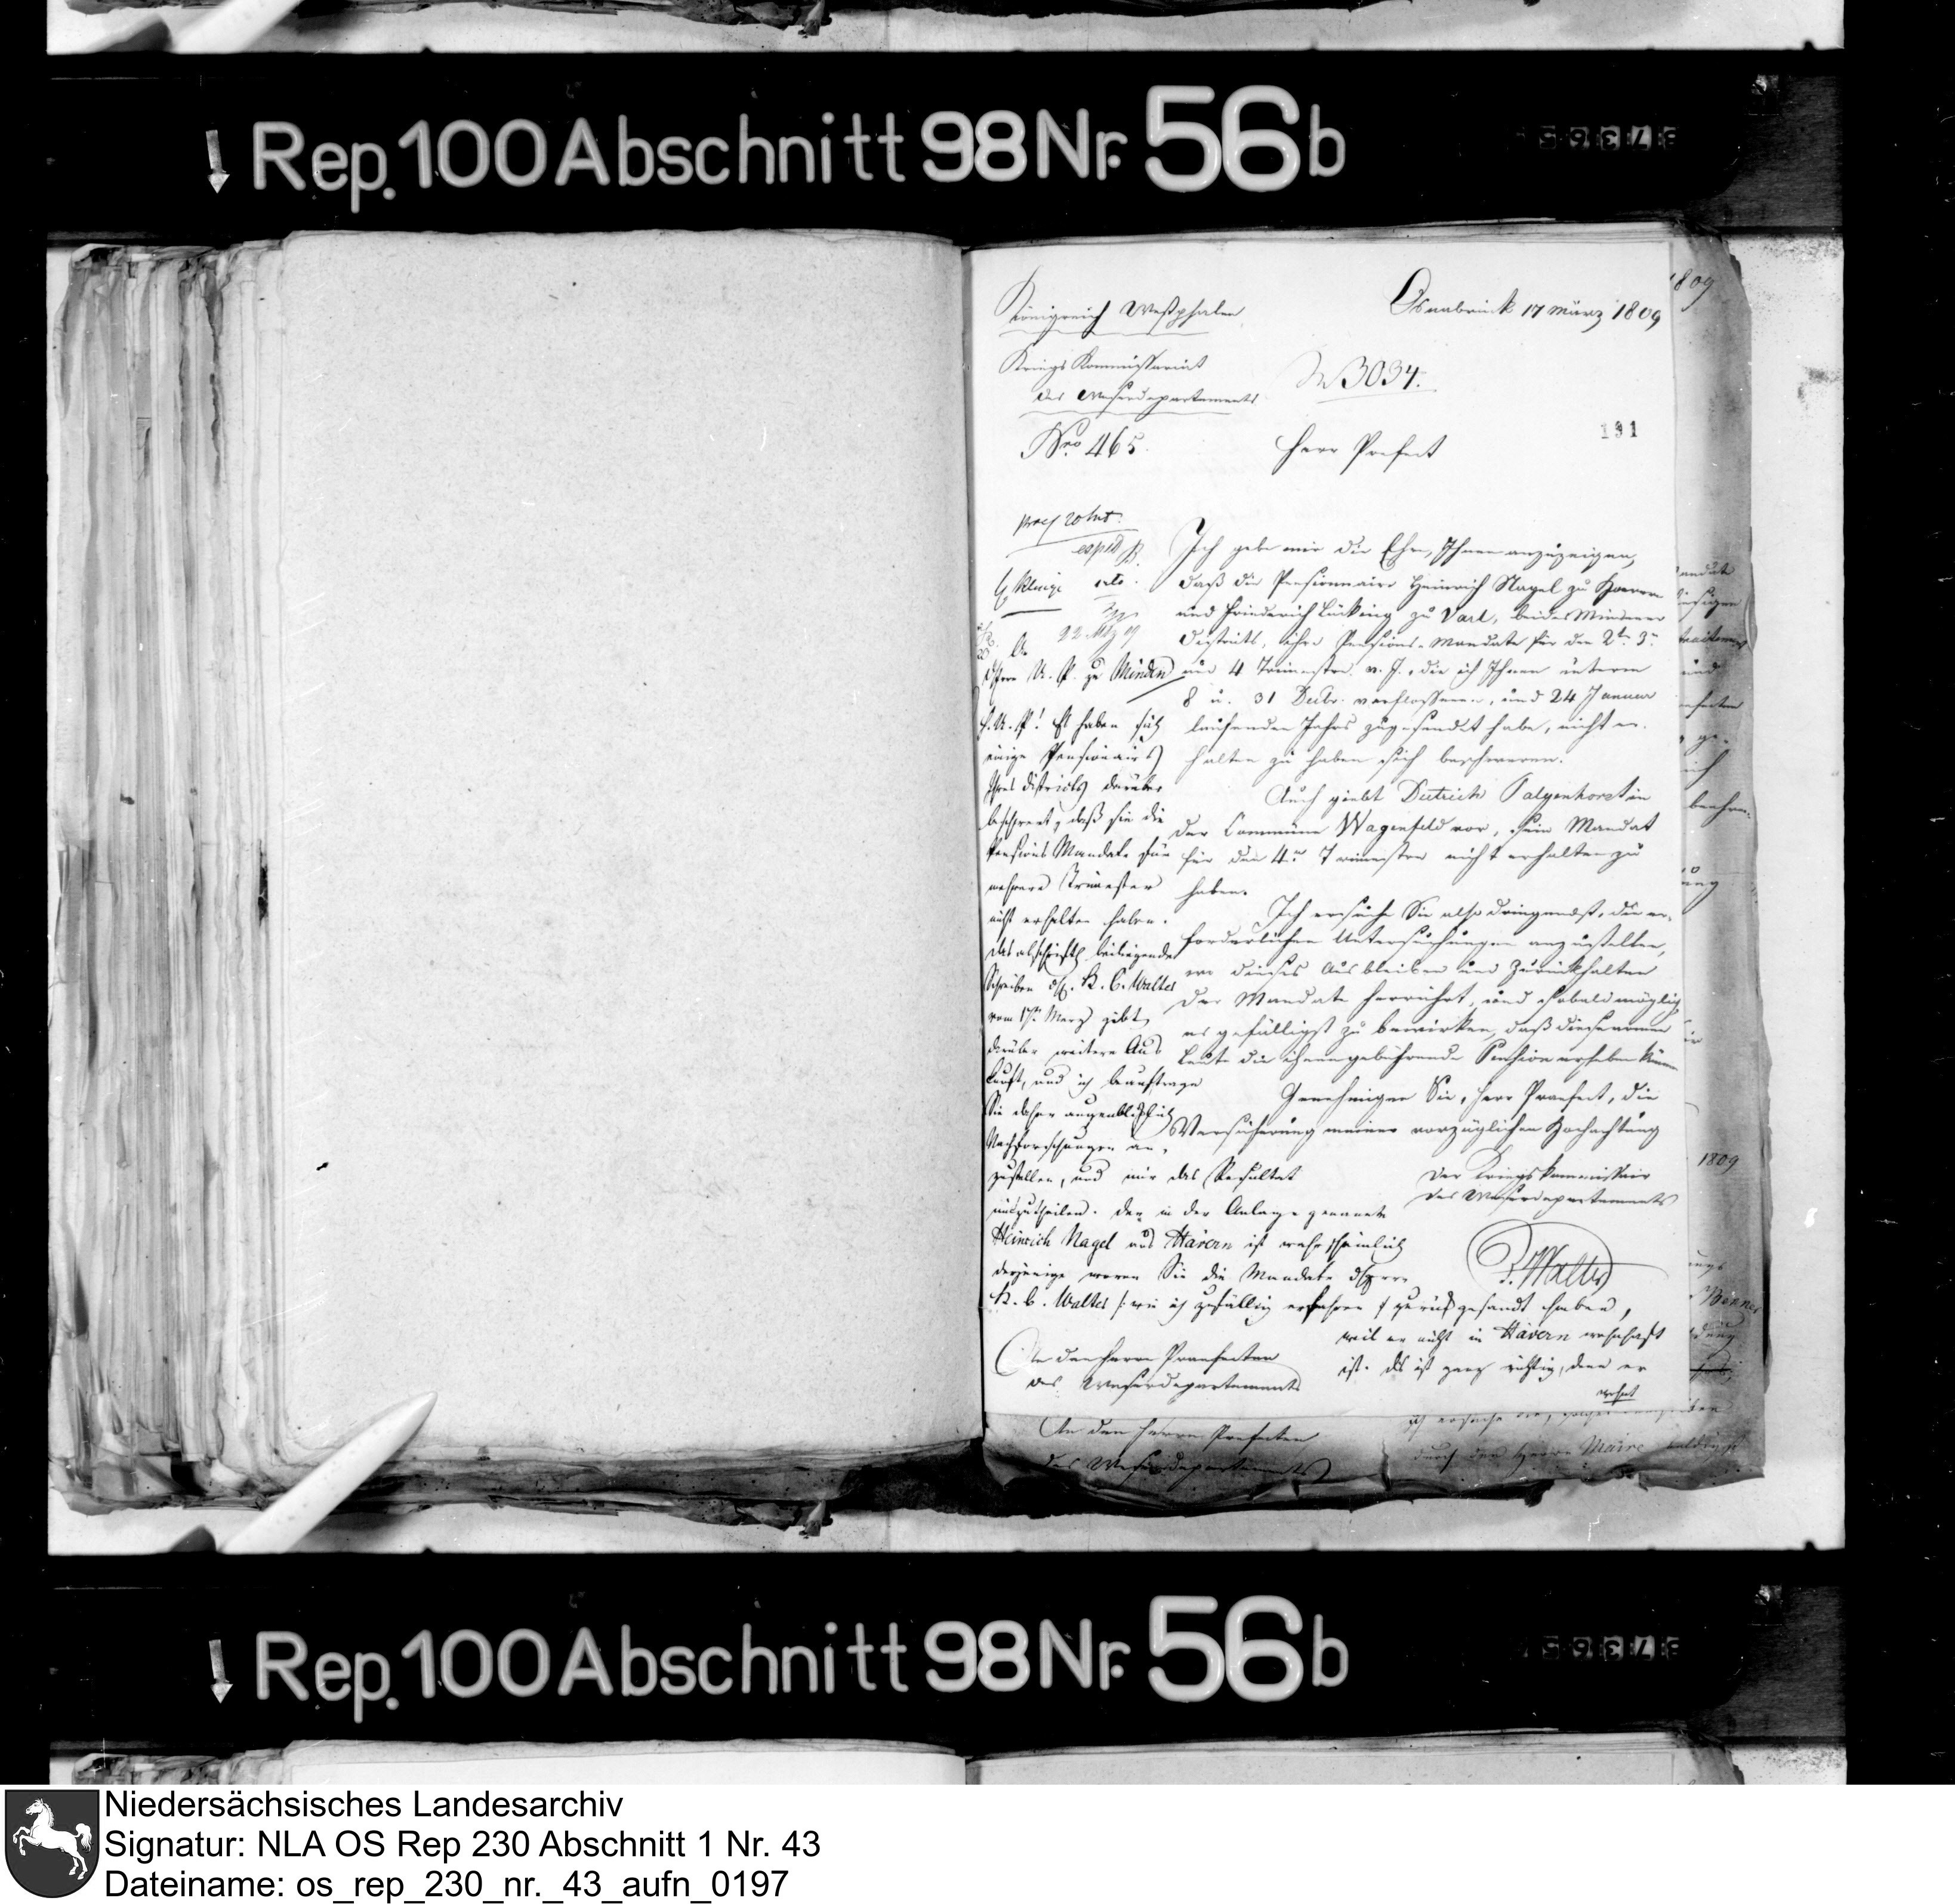 Rep. 100 Abschnitt 98 Nr. 56b
1809
Königreich Westphalen
Osnabrück 17 März 1809
Kriegs Kommissariat
des Weserdepartements
3034.
Nro 465.
191
Herr Prefect
Ich gebe mir die Ehre, Ihnen anzuzeigen,
daß die Pensionnaire Heinrich Nagel zu Haevern
und Friederich Lücking zu Varl, beides Mindener
Districts, ihre Pensions-Mandate für den 2ten 3n
und 4 Trimestre v. J., die ich Ihnen unterm
8 u. 31 Decbr. verflossenen, und 24 Januar
laufenden Jahrs zugesandt habe, nicht er-
halten zu haben sich beschweren.
Auch giebt Dietrich Palgenhorst in
der Commune Wagenfeld vor, sein Mandat
für den 4ten Trimestre nicht erhalten zu
haben.
Ich ersuche Sie also dringendst, die er-
forderlichen Untersuchungen anzustellen,
wo dieses Ausbleiben und Zurückhalten
der Mandate herrührt, und sobald möglich
es gefälligst zu bewirken, daß diese armen
Leute die ihnen gebührende Pension erheben können
Genehmigen Sie, Herr Praefect, die
Versicherung meiner vorzüglichen Hochachtung
Der Kriegskommissair
des Weserdepartements
P. Walter
An den Herrn Praefecten
des Weserdepartements
praes 20 hut.
expd
22 Mrz 09
An
Herrn U. P. zu Minden
H. U. P! Es haben sich
einige Pensionairs
Ihres Districts darüber
beschwert, daß sie die
Pensions Mandate für
mehrere Trimester
nicht erhalten haben.
Das abschriftl. beiliegende
Schreiben K. C. Walter
vom 17n Merz giebt
darüber weitere Aus
kunft, und ich beauftrage
Sie daher augenblicklich
Nachforschungen an-
zustellen, und mir das Resultat
mitzutheilen. Der in der Anlage genannte
Heinrich Nagel aus Hävern ist wahrscheinlich
derjenige wovon Sie die Mandate
K. C. Walter /: wie ich zufällig erfahren :/ zurückgesandt haben,
weil er nicht in Hävern wohnhaft
ist. Dies ist ganz richtig, denn er
wohnt
1809
An den Herrn Prefecten
des Weserdepartements
durch den Herrn Maire
Rep. 100 Abschnitt 98 Nr. 56b
Niedersächsisches Landesarchiv
Signatur: NLA OS Rep 230 Abschnitt 1 Nr. 43
Dateiname: os_rep_230_nr._43_aufn_0197